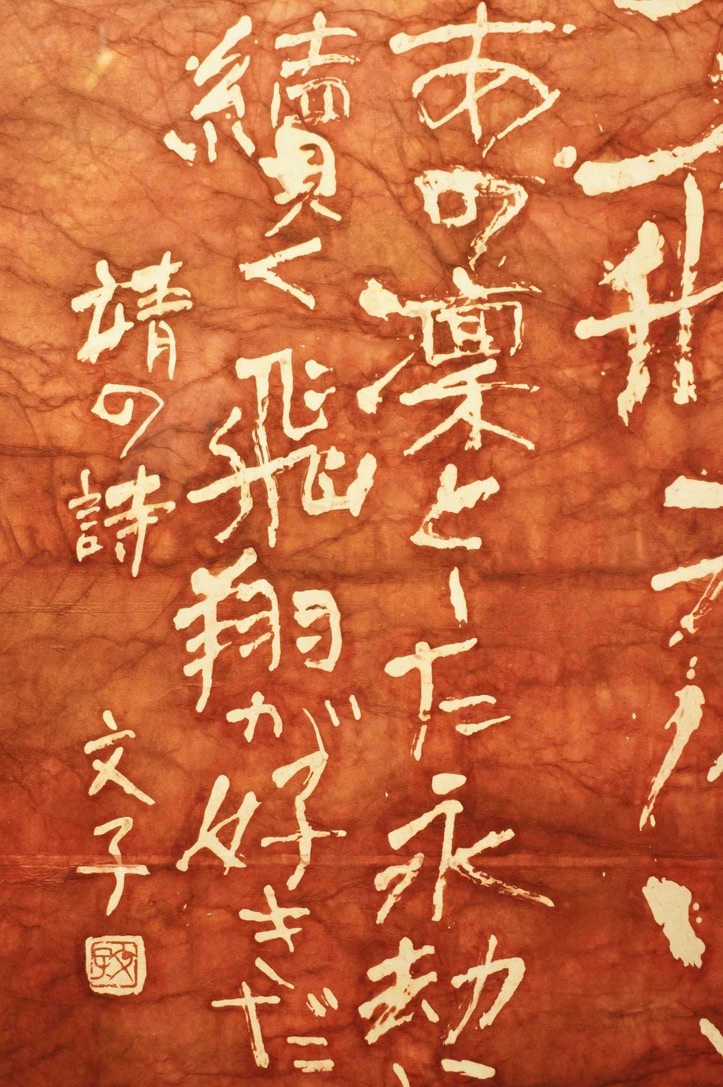 升
あの凛とした永劫に
續く飛翔が好きだ
靖の詩
文子